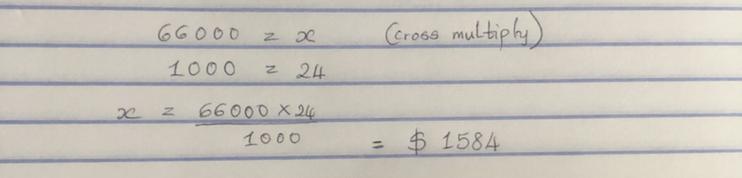 66000 = x (cross multiply)
1000 = 24
x = 66000 × 24
1000
= $ 1584